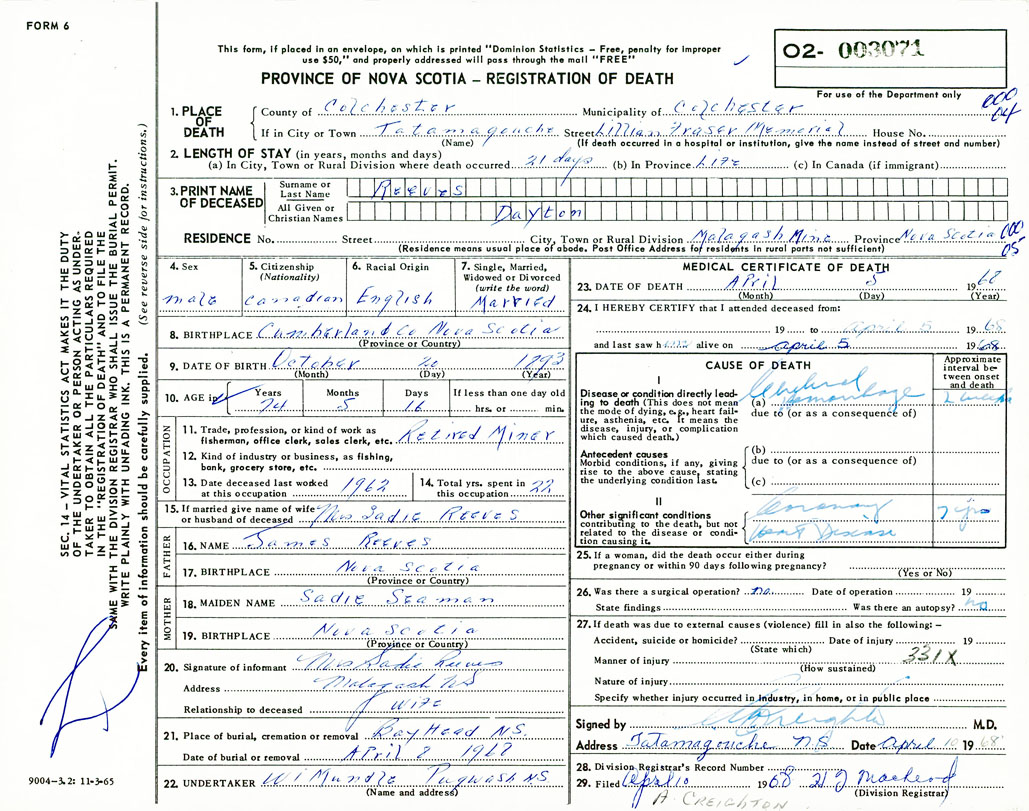 FORM 6
This form, if placed in an envelope, on which is printed "Dominion Statistics – Free, penalty for improper
use $50," and properly addressed will pass through the mail "FREE"
PROVINCE OF NOVA SCOTIA – REGISTRATION OF DEATH
02- 003071
For use of the Department only
000
04
1. PLACE OF DEATH
County of Colchester Municipality of Colchester
If in City or Town Tatamagouche Street Lillian Fraser Memorial House No.
(Name) (If death occurred in a hospital or institution, give the name instead of street and number)
2. LENGTH OF STAY (in years, months and days)
(a) In City, Town or Rural Division where death occurred 21 days (b) In Province Life (c) In Canada (if immigrant)
3. PRINT NAME OF DECEASED
Surname or Last Name Reeves
All Given or Christian Names Dayton
RESIDENCE No. Street City, Town or Rural Division Malagash Mine Province Nova Scotia
000
05
(Residence means usual place of abode. Post Office Address for residents in rural parts not sufficient)
4. Sex
male
5. Citizenship
(Nationality)
Canadian
6. Racial Origin
English
7. Single, Married,
Widowed or Divorced
(write the word)
Married
8. BIRTHPLACE Cumberland Co Nova Scotia
(Province or Country)
9. DATE OF BIRTH October 20 1893
(Month) (Day) (Year)
10. AGE in
Years Months Days If less than one day old
74 5 16 hrs. or min.
OCCUPATION
11. Trade, profession, or kind of work as
fisherman, office clerk, sales clerk, etc. Retired Miner
12. Kind of industry or business, as fishing,
bank, grocery store, etc.
13. Date deceased last worked
at this occupation 1962
14. Total yrs. spent in
this occupation 22
15. If married give name of wife
or husband of deceased Mrs Sadie Reeves
FATHER
16. NAME James Reeves
17. BIRTHPLACE Nova Scotia
(Province or Country)
MOTHER
18. MAIDEN NAME Sadie Seaman
19. BIRTHPLACE Nova Scotia
(Province or Country)
20. Signature of informant Mrs Sadie Reeves
Address Malagash NS
Relationship to deceased Wife
21. Place of burial, cremation or removal Bay Head N.S.
Date of burial or removal April
22. UNDERTAKER Pugwash NS
(Name and address)
MEDICAL CERTIFICATE OF DEATH
23. DATE OF DEATH April 5 1968
(Month) (Day) (Year)
24. I HEREBY CERTIFY that I attended deceased from:
19 to april 5 1968
and last saw him alive on april 5 1968
CAUSE OF DEATH
Approximate
interval be-
tween onset
and death
I
Disease or condition directly lead-
ing to death (This does not mean
the mode of dying, e.g., heart fail-
ure, asthenia, etc. It means the
disease, injury, or complication
which caused death.)
(a) Cerebral Hemorrhage 2 weeks
due to (or as a consequence of)
Antecedent causes
Morbid conditions, if any, giving
rise to the above cause, stating
the underlying condition last.
(b)
due to (or as a consequence of)
(c)
II
Other significant conditions
contributing to the death, but not
related to the disease or condi-
tion causing it.
Coronary
Heart Disease
7 yrs
25. If a woman, did the death occur either during
pregnancy or within 90 days following pregnancy?
(Yes or No)
26. Was there a surgical operation? no. Date of operation 19
State findings Was there an autopsy? no
27. If death was due to external causes (violence) fill in also the following: –
Accident, suicide or homicide? Date of injury 19
(State which)
Manner of injury 331X
(How sustained)
Nature of injury
Specify whether injury occurred in industry, in home, or in public place
Signed by Creighton M.D.
Address Tatamagouche N S Date April 10 1968
28. Division Registrar's Record Number
29. Filed April 10 1968
(Division Registrar)
A CREIGHTON
SEC. 14 – VITAL STATISTICS ACT MAKES IT THE DUTY
OF THE UNDERTAKER OR PERSON ACTING AS UNDER-
TAKER TO OBTAIN ALL THE PARTICULARS REQUIRED
IN THE "REGISTRATION OF DEATH" AND TO FILE THE
SAME WITH THE DIVISION REGISTRAR WHO SHALL ISSUE THE BURIAL PERMIT.
WRITE PLAINLY WITH UNFADING INK. THIS IS A PERMANENT RECORD.
Every item of information should be carefully supplied. (See reverse side for instructions.)
9004-3.2: 11-3-65